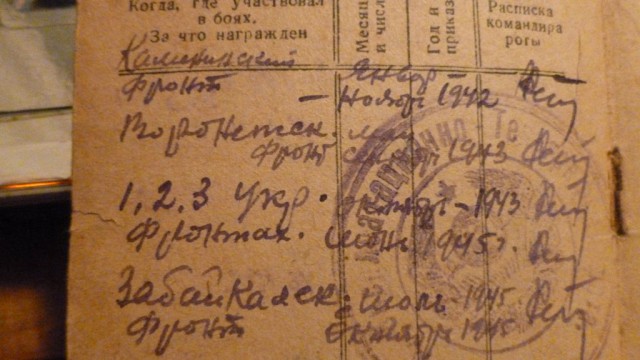 Когда, где участвовал
в боях.
За что награжден
Месяц
и число
Год и
приказ
Расписка
командира
роты
Калининский
фронт
Январь –
– Ноябрь 1942
Воронежск. май
фронт 1943
1, 2, 3 Укр. октябрь – 1943
Фронтах. 1945 г.
Забайкальск. с июль 1945
Фронт октябрь 1945